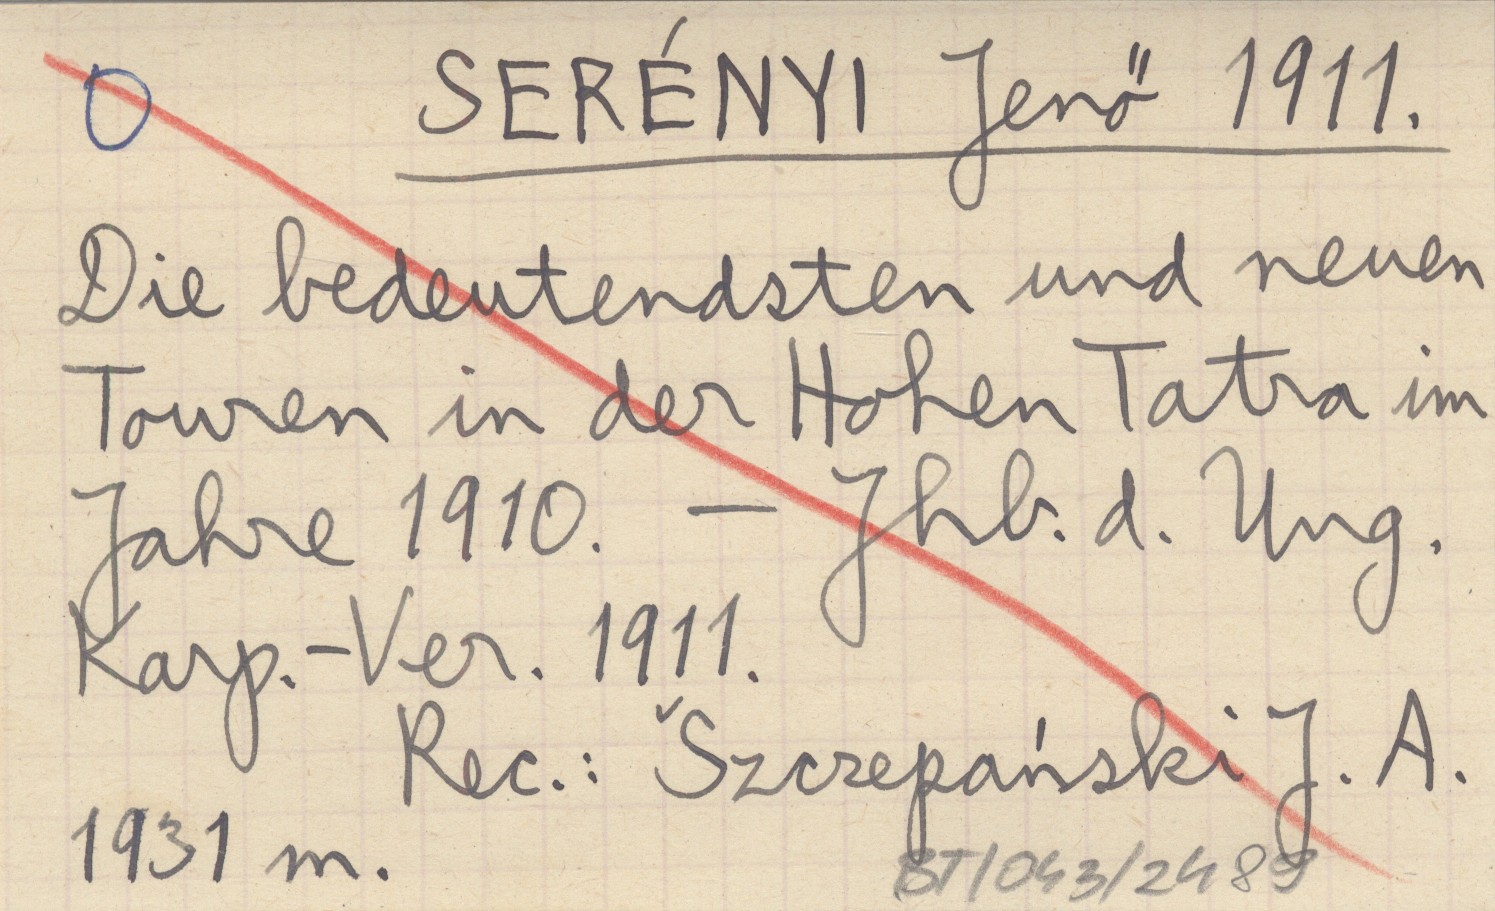 O SERÉNYI Jenő 1911.
Die bedeutendsten und neuen
Touren in der Hohen Tatra im
Jahre 1910. — Jhb. d. Ung.
Karp.-Ver. 1911.
Rec.: Šzczepański J. A.
1931 m.
BT/043/2489